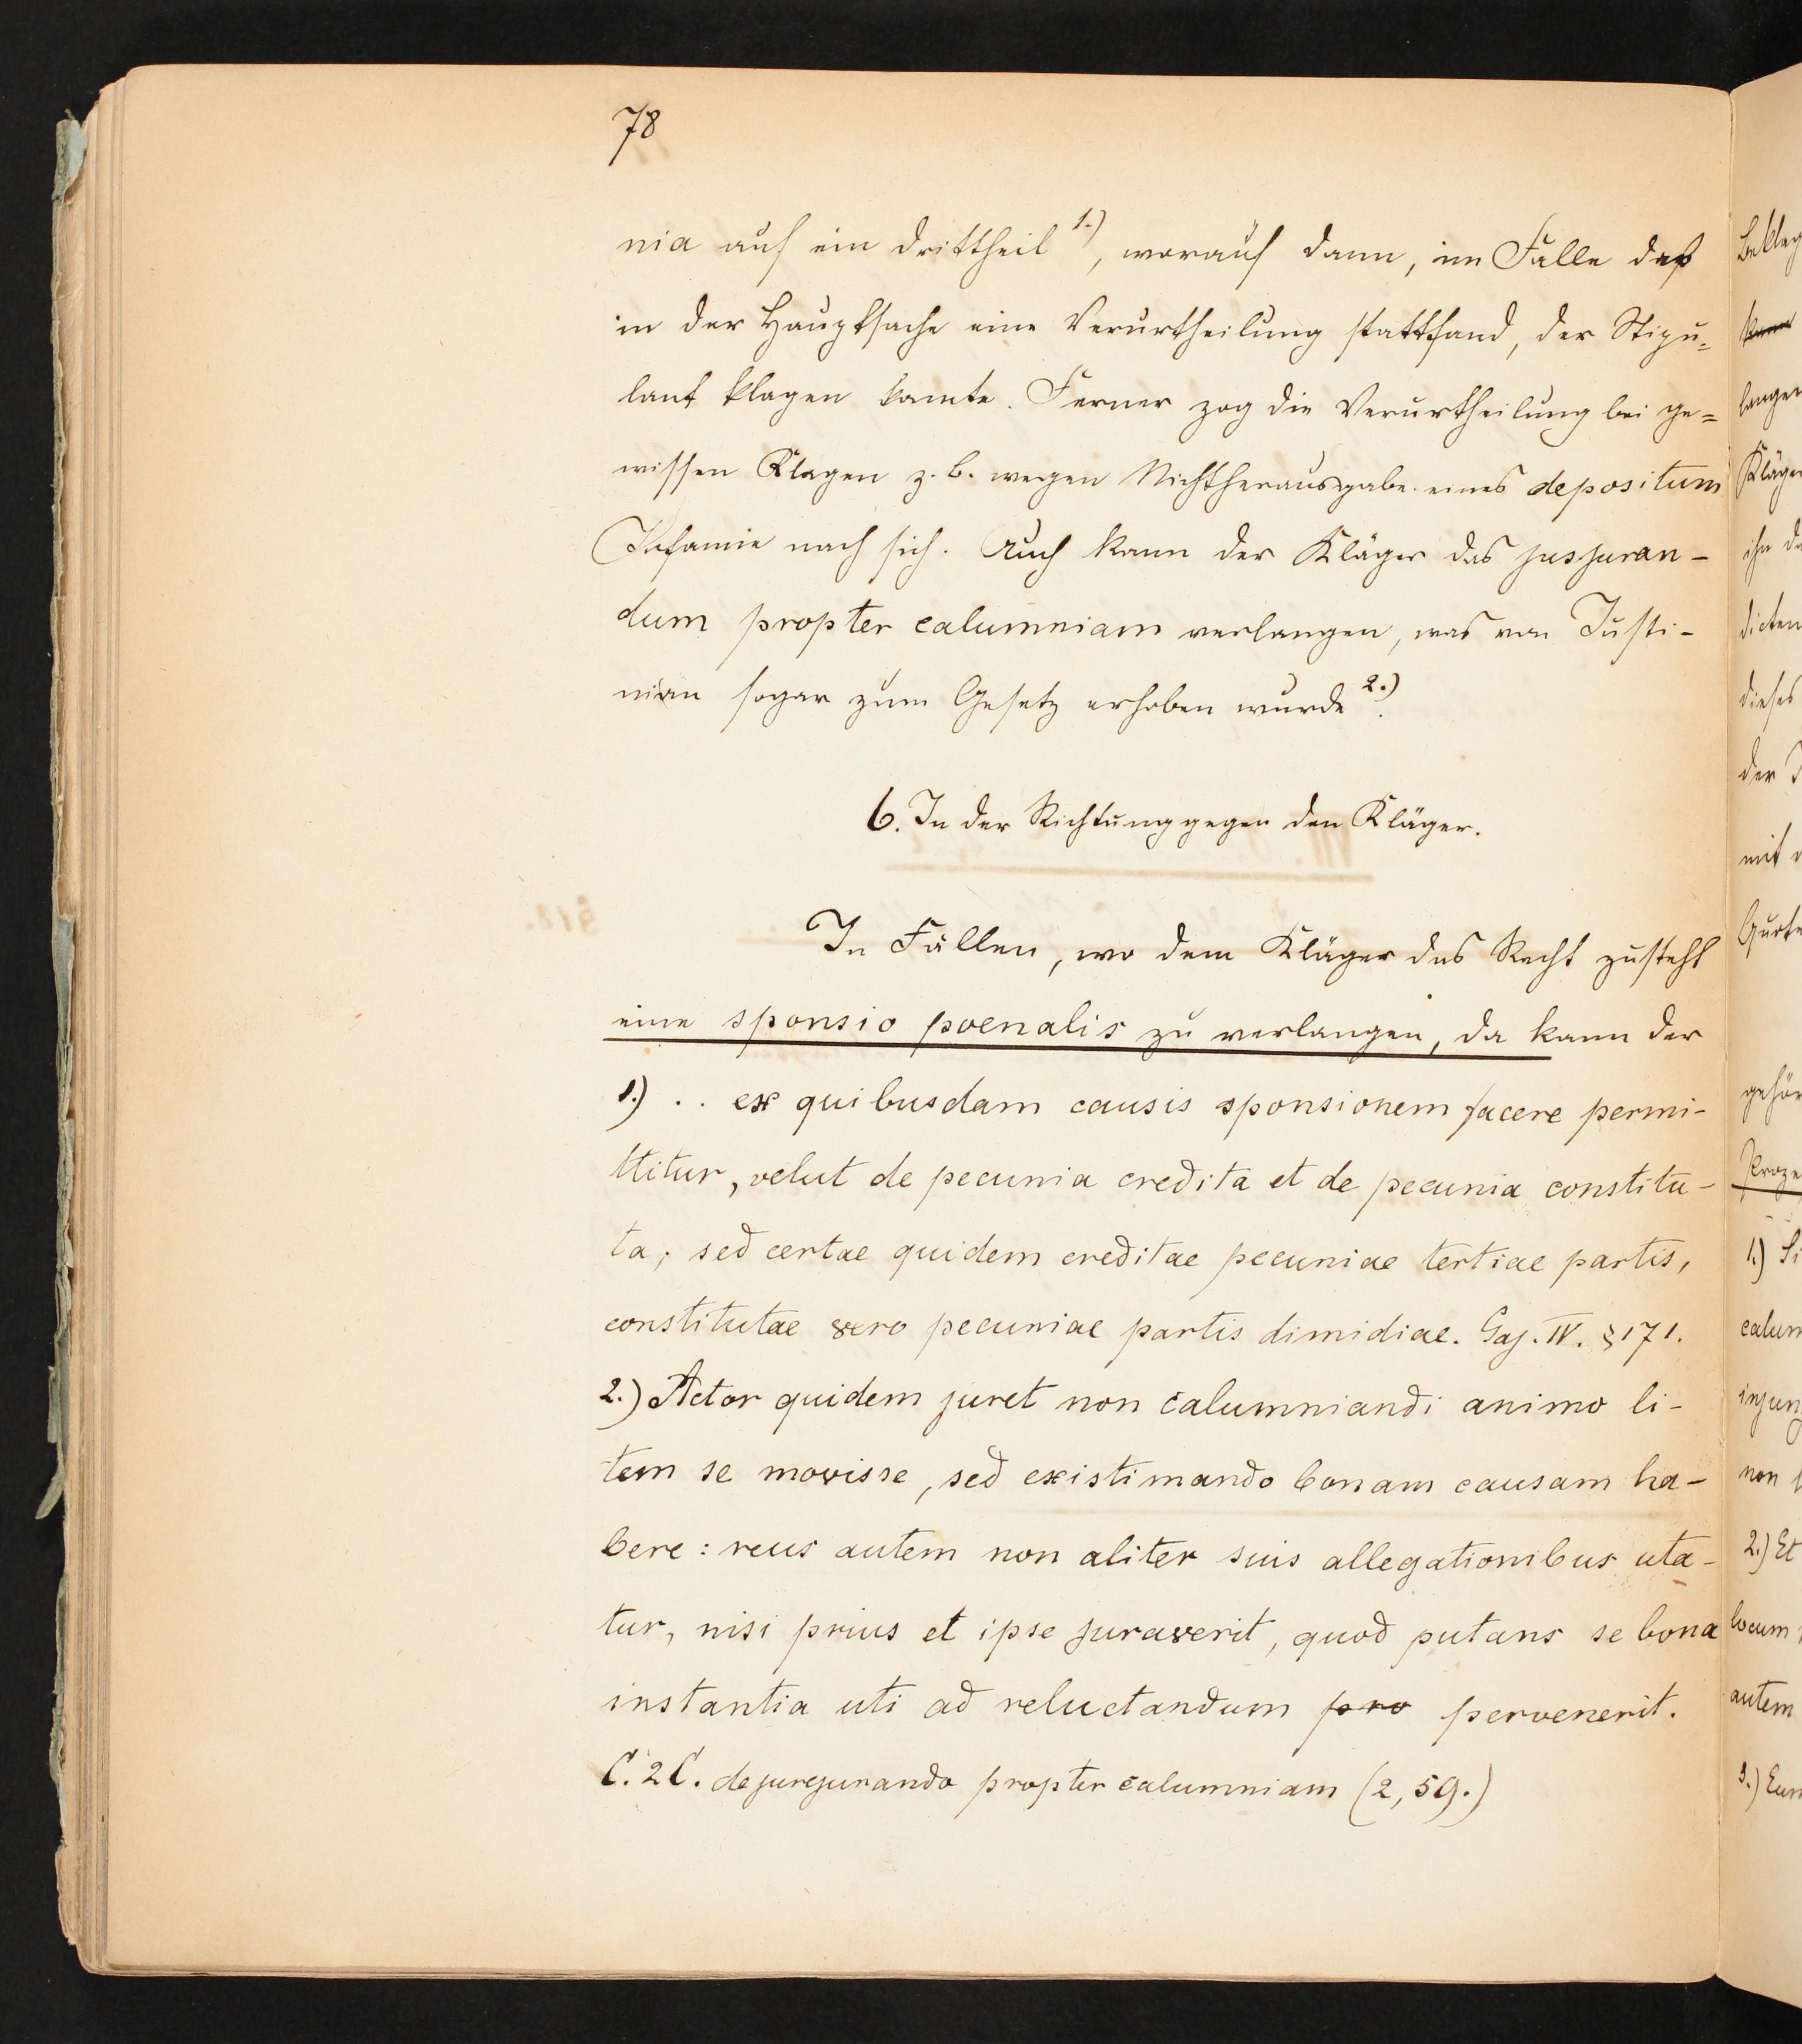 78
nia auf ein Drittheil 1.), worauf dann, im Falle daß
in der Hauptsache eine Verurtheilung stattfand, der Stipu-
lant klagen konnte. Ferner zog die Verurtheilung bei ge=
wissen Klagen z. b. wegen Nichtherausgabe eines depositum
Infamie nach sich. Auch kann der Kläger das jusjuran-
dum propter calumniam verlangen, was von Justi-
nian sogar zum Gesetz erhoben wurde 2.).
b. In der Richtung gegen den Kläger.
In Fällen, wo dem Kläger das Recht zusteht
eine sponsio poenalis zu verlangen, da kann der
1.) .. ex quibusdam causis sponsionem facere permi-
ttitur, velut de pecunia credita et de pecunia constitu-
ta; sed certae quidem creditae pecuniae tertiae partis,
constitutae vero pecuniae partis dimidiae. Gaj. IV. § 171.
2.) Actor quidem juret non calumniandi animo li-
tem se movisse, sed existimando bonam causam ha-
bere: reus autem non aliter suis allegationibus uta-
tur, nisi prius et ipse juraverit, quod putans se bona
instantia uti ad reluctandum pro pervenerit.
C. 2 C. de jurejurando propter calumniam (2, 59.)
Beklag
langen
Kläger
ihn da
dicten
dieses
der
mit
gehör
Proze
1.) Si
calum
injun
non
2.) Et
locum
autem
3.) Eum